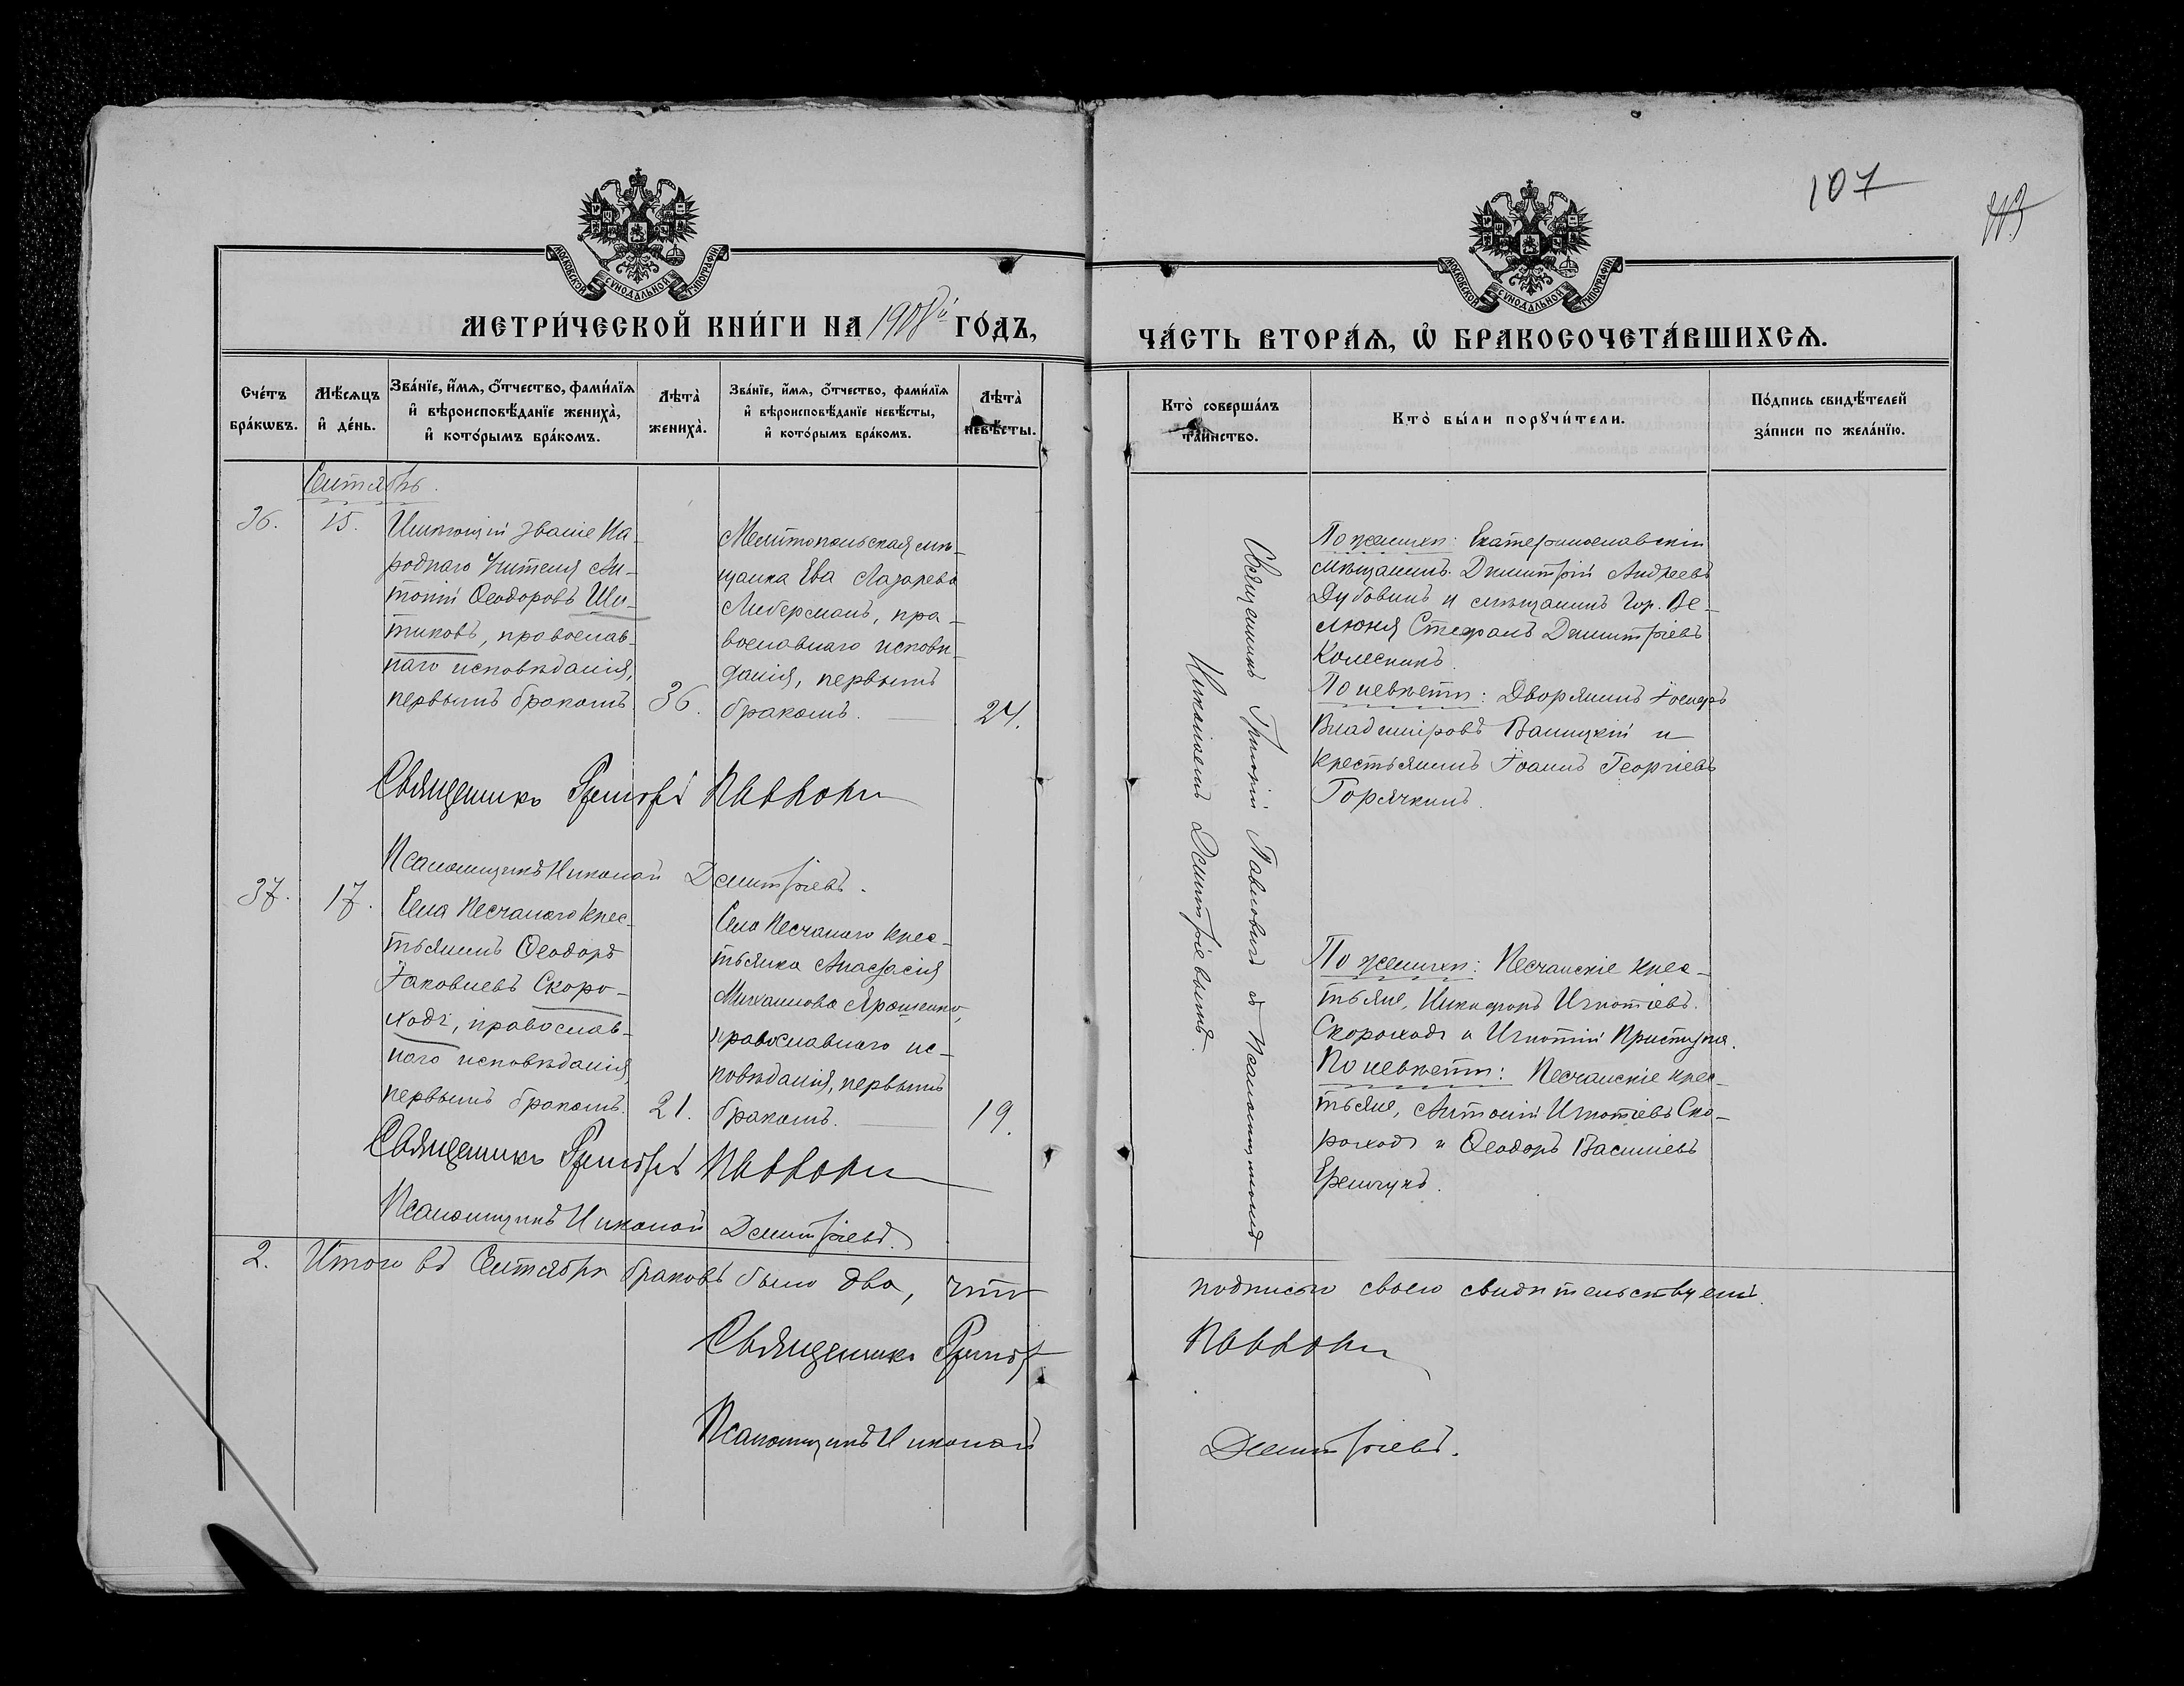 107
МОСКОВСКОЙ СУНОДАЛЬНОЙ ТИПОГРАФІИ
МЕТРИ́ЧЕСКОЙ КНИ́ГИ НА 1908й ГО́ДЪ,
Сче́тъ бра́кѡвъ.
Мѣ́сяцъ и҆ де́нь.
Зва́нїе, и҆́мѧ, ѻ҆́тчество, фами́лїѧ
и҆ вѣроисповѣ́данїе жениха̀,
и҆ кото́рымъ бра́комъ.
Лѣта̀ жениха̀.
Зва́нїе, и҆́мѧ, ѻ҆́тчество, фами́лїѧ
и҆ вѣроисповѣ́данїе невѣ́сты,
и҆ кото́рымъ бра́комъ.
Лѣта̀ невѣ́сты.
Сентябрь.
36.
15.
Имѣющій званіе На-
роднаго Учителя Ан-
тоній Ѳеодоровъ
тиковъ, православ-
наго исповѣданія,
первымъ бракомъ
36.
Мелитопольская мѣ-
щанка Ева Лазарева
Либерманъ, пра-
вославнаго исповѣ-
данія, первымъ
бракомъ.
24.
Священникъ Григорій
Псаломщикъ Николай Димитріевъ.
37.
17.
Села Песчанаго крес-
тьянинъ Ѳеодоръ
Іаковлевъ Скоро-
ходъ, православ-
наго исповѣданія,
первымъ бракомъ.
21.
Села Песчанаго крес-
тьянка Анастасія
Михаилова Ярошенко,
православнаго ис-
повѣданія, первымъ
бракомъ.
19.
Священникъ Григорій
Псаломщикъ Николай Димитріевъ.
2. Итого въ Сентябрѣ браковъ было два, что
Священникъ Григор
Псаломщикъ Николай
МОСКОВСКОЙ СУНОДАЛЬНОЙ ТИПОГРАФІИ
ЧА́СТЬ ВТОРА́Ѧ, Ѡ҆ БРАКОСОЧЕТА́ВШИХСѦ.
Кто̀ соверша́лъ та́инство.
Кто̀ бы́ли порꙋчи́тели.
По́дпись свидѣ́телей
за́писи по жела́нїю.
Священникъ Григорій Павловичъ съ Псаломщикомъ
Николаемъ Димитріевымъ.
По женихѣ: Екатеринославскій
мѣщанинъ Димитрій Андреевъ
Дубовикъ и мѣщанинъ гор. Ве-
люня Стефанъ Димитріевъ
Колесникъ.
По невѣстѣ: Дворянинъ Іосифъ
Владиміровъ Валицкій и
крестьянинъ Іоаннъ Георгіевъ
Горячкинъ.
По женихѣ: Песчанскіе крес-
тьяне, Никифоръ Игнатіевъ
Скороходъ и Игнатій Приступа.
По невѣстѣ: Песчанскіе крес-
тьяне, Антоній Игнатіевъ Ско-
роходъ и Ѳеодоръ Василіевъ
подписью своею свидѣтельствуемъ.
Димитріевъ.